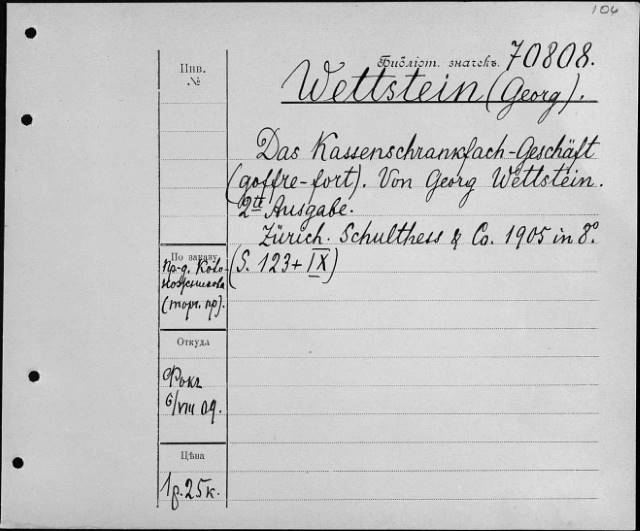 104
Библіот. значекъ. 70808.
Инв.
№
Wettstein (Georg).
Das Kassenschrankfach-Geschäft
(goffre-fort). Von Georg Wettstein.
2tt Ausgabe.
Zürich. Schulthess & Co. 1905 in 8°.
(S. 123+IX)
По заказу
Пр-д. Ково-
ножникова
(торг. пр).
Откуда
Фокъ
6/VIII 09.
Цѣна
1 р. 25 к.